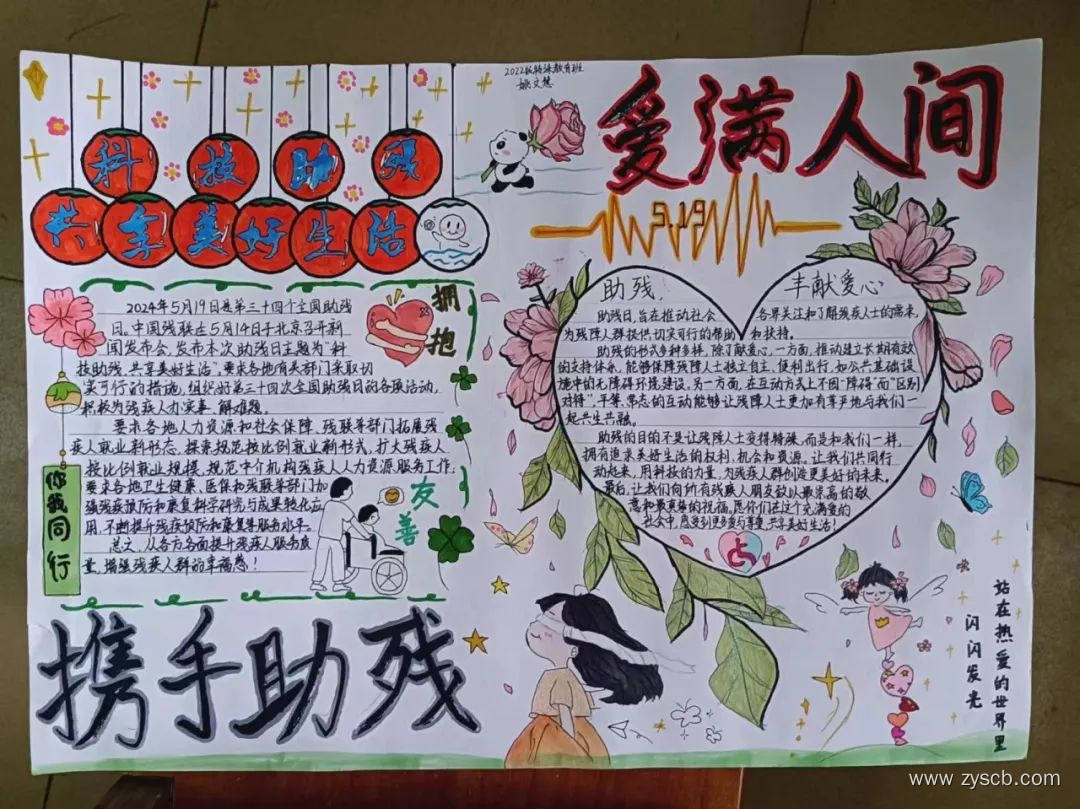 科技助残
共享美好生活
2022级特殊教育班
姚文慧
爱满人间
5.19
拥抱
2024年5月19日是第三十四个全国助残
日。中国残联在5月14日于北京召开新
闻发布会，发布本次助残日主题为“科
技助残，共享美好生活”，要求各地有关部门采取切
实可行的措施，组织好第三十四次全国助残日的各项活动，
积极为残疾人办实事、解难题。
要求各地人力资源和社会保障、残联等部门拓展残
疾人就业新形态，探索规范按比例就业新形式，扩大残疾人
按比例就业规模，规范中介机构残疾人人力资源服务工作；
要求各地卫生健康、医保和残联等部门加
强残疾预防和康复科学研究与成果转化应
用，不断提升残疾预防和康复等服务水平。
总之，从各方各面提升残疾人服务质
量，增强残疾人群的幸福感！
你我同行
友善
携手助残
助残，
奉献爱心
助残日，旨在推动社会
各界关注和了解残疾人士的需求，
为残障人群提供切实可行的帮助
和扶持。
助残的形式多种多样，除了献爱心，一方面，推动建立长期有效
的支持体系，能够保障残障人士独立自主、便利出行，如公共基础设
施中的无障碍环境建设。另一方面，在互动方式上不因“障碍”而“区别
对待”，平等、常态的互动能够让残障人士更加有尊严地与我们一
起共生共融。
助残的目的不是让残障人士变得特殊，而是和我们一样，
拥有追求美好生活的权利、机会和资源。让我们共同行
动起来，用科技的力量，为残疾人群创造更美好的未来。
最后，让我们向所有残疾人朋友致以最崇高的敬
意和最真挚的祝福。愿你们在这个充满爱的
社会中，感受到更多爱与尊重，共享美好生活！
站在热爱的世界里
闪闪发光
www.zyscb.com